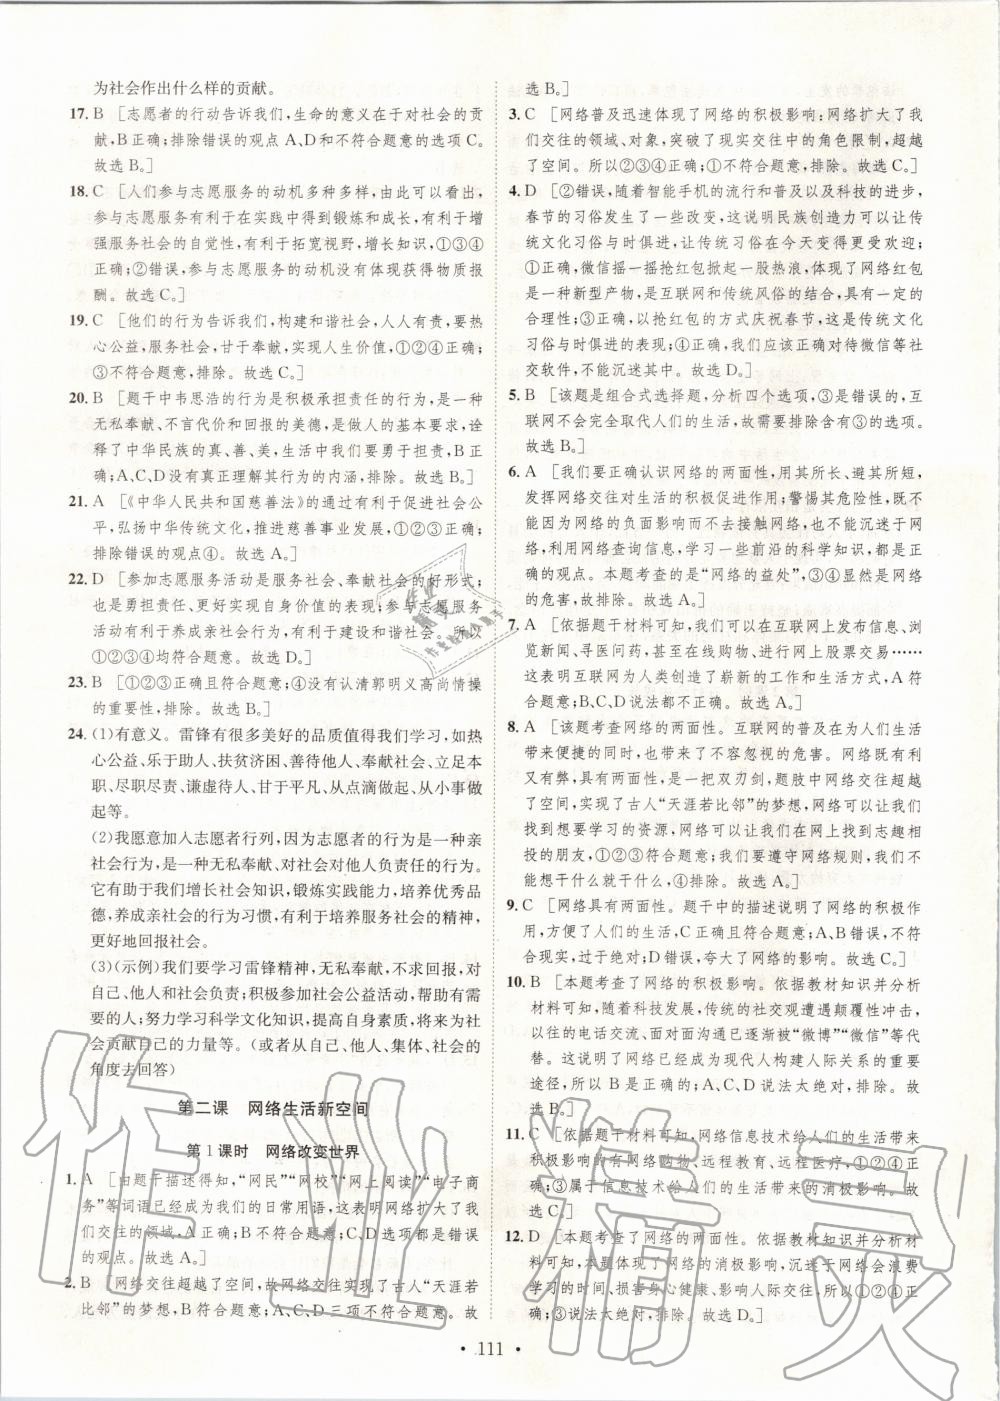 为社会作出什么样的贡献。
17. B [志愿者的行动告诉我们,生命的意义在于对社会的贡
献,B正确;排除错误的观点A、D和不符合题意的选项C。
故选B。]
18. C [人们参与志愿服务的动机多种多样,由此可以看出,
参与志愿服务有利于在实践中得到锻炼和成长,有利于增
强服务社会的自觉性,有利于拓宽视野,增长知识,①③④
正确;②错误,参与志愿服务的动机没有体现获得物质报
酬。故选C。]
19. C [他们的行为告诉我们,构建和谐社会,人人有责,要热
心公益,服务社会,甘于奉献,实现人生价值,①②④正确;
③不符合题意,排除。故选C。]
20. B [题干中韦思浩的行为是积极承担责任的行为,是一种
无私奉献、不言代价和回报的美德,是做人的基本要求,诠
释了中华民族的真、善、美,生活中我们要勇于担责,B正
确;A、C、D没有真正理解其行为的内涵,排除。故选B。]
21. A [《中华人民共和国慈善法》的通过有利于促进社会公
平,弘扬中华传统文化,推进慈善事业发展,①②③正确;
排除错误的观点④。故选A。]
22. D [参加志愿服务活动是服务社会、奉献社会的好形式;
也是勇担责任、更好地实现自身价值的表现;参与志愿服务
活动有利于养成亲社会行为;有利于建设和谐社会。所以
①②③④均符合题意。故选D。]
23. B [①②③正确且符合题意;④没有认清郭明义高尚情操
的重要性,排除。故选B。]
24. (1)有意义。雷锋有很多美好的品质值得我们学习,如热
心公益、乐于助人、扶贫济困、善待他人、奉献社会、立足本
职、尽职尽责、谦虚待人、甘于平凡、从点滴做起、从小事做
起等。
(2)我愿意加入志愿者行列,因为志愿者的行为是一种亲
社会行为,是一种无私奉献、对社会对他人负责任的行为。
它有助于我们增长社会知识,锻炼实践能力,培养优秀品
德,养成亲社会的行为习惯,有利于培养服务社会的精神,
更好地回报社会。
(3)(示例)我们要学习雷锋精神,无私奉献,不求回报,对
自己、他人和社会负责;积极参加社会公益活动,帮助有需要
的人;努力学习科学文化知识,提高自身素质,将来为社
会贡献自己的力量等。(或者从自己、他人、集体、社会的
角度去回答)
第二课 网络生活新空间
第1课时 网络改变世界
1. A [由题干描述得知,“网民”“网校”“网上阅读”“电子商
务”等词语已经成为我们的日常用语,这表明网络扩大了我
们交往的领域,A正确;B不符合题意;C、D选项都是错误
的观点。故选A。]
2. B [网络交往超越了空间,故网络交往实现了古人“天涯若
比邻”的梦想,B符合题意;A、C、D三项不符合题意。故
选B。]
3. C [网络普及迅速体现了网络的积极影响;网络扩大了我
们交往的领域、对象,突破了现实交往中的角色限制,超越
了空间。所以②③④正确;①不符合题意,排除。故选C。]
4. D [②错误,随着智能手机的流行和普及以及科技的进步,
春节的习俗发生了一些改变,这说明民族创造力可以让传
统文化习俗与时俱进,让传统习俗在今天变得更受欢迎;
①正确,微信摇一摇抢红包掀起一股热浪,体现了网络红包
是一种新型产物,是互联网和传统风俗的结合,具有一定的
合理性;③正确,以抢红包的方式庆祝春节,这是传统文化
习俗与时俱进的表现;④正确,我们应正确对待微信等社
交软件,不能沉迷其中。故选D。]
5. B [该题是组合式选择题,分析四个选项,③是错误的,互
联网不会完全取代人们的生活,故需要排除含有③的选项。
故选B。]
6. A [我们要正确认识网络的两面性,用其所长、避其所短,
发挥网络交往对生活的积极促进作用;警惕其危险性,既不
能因为网络的负面影响而不去接触网络,也不能沉迷于网
络,利用网络查询信息,学习一些前沿的科学知识,①②是
正确的观点。本题考查的是“网络的益处”,③④显然是网络
的危害,故排除。故选A。]
7. A [依据题干材料可知,我们可以在互联网上发布信息、浏
览新闻、寻医问药,甚至在线购物、进行网上股票交易……
这表明互联网为人类创造了崭新的工作和生活方式,A符
合题意;B、C、D说法都不正确。故选A。]
8. A [该题考查网络的两面性。互联网的普及在为人们生活
带来便捷的同时,也带来了不容忽视的危害。网络既有利
又有弊,具有两面性,是一把双刃剑,题肢中网络交往超越
了空间,实现了古人“天涯若比邻”的梦想,网络可以让我们
找到想要学习的资源,网络可以让我们在网上找到志趣相
投的朋友,①②③符合题意;我们要遵守网络规则,我们不
能想干什么就干什么,④排除。故选A。]
9. C [网络具有两面性。题干中的描述说明了网络的积极作
用,方便了人们的生活,C正确且符合题意;A、B不符合题
意,排除;D错误,夸大了网络的影响。故选C。]
10. B [本题考查了网络的积极影响。依据教材知识并分析
材料可知,随着科技发展,传统的社交观遭遇颠覆性冲击,
以往的电话交流、面对面沟通已逐渐被“微博”“微信”等代
替。这说明了网络已经成为现代人构建人际关系的重要
途径,所以B是正确的;A、C、D说法太绝对,排除。故
选B。]
11. C [依据题干材料可知,网络信息技术给人们的生活带来
积极影响的有网络购物、远程教育、远程医疗,①②④正
确;③属于信息技术给人们的生活带来的消极影响。故
选C。]
12. B [本题考查了网络的两面性。依据教材知识并分析材
料可知,本题体现了网络的消极影响,沉迷网络会浪费
学习的时间、损害身心健康、影响人际交往,所以①②④正
确;③说法太绝对,排除。故选B。]
• 111 •
作业精灵